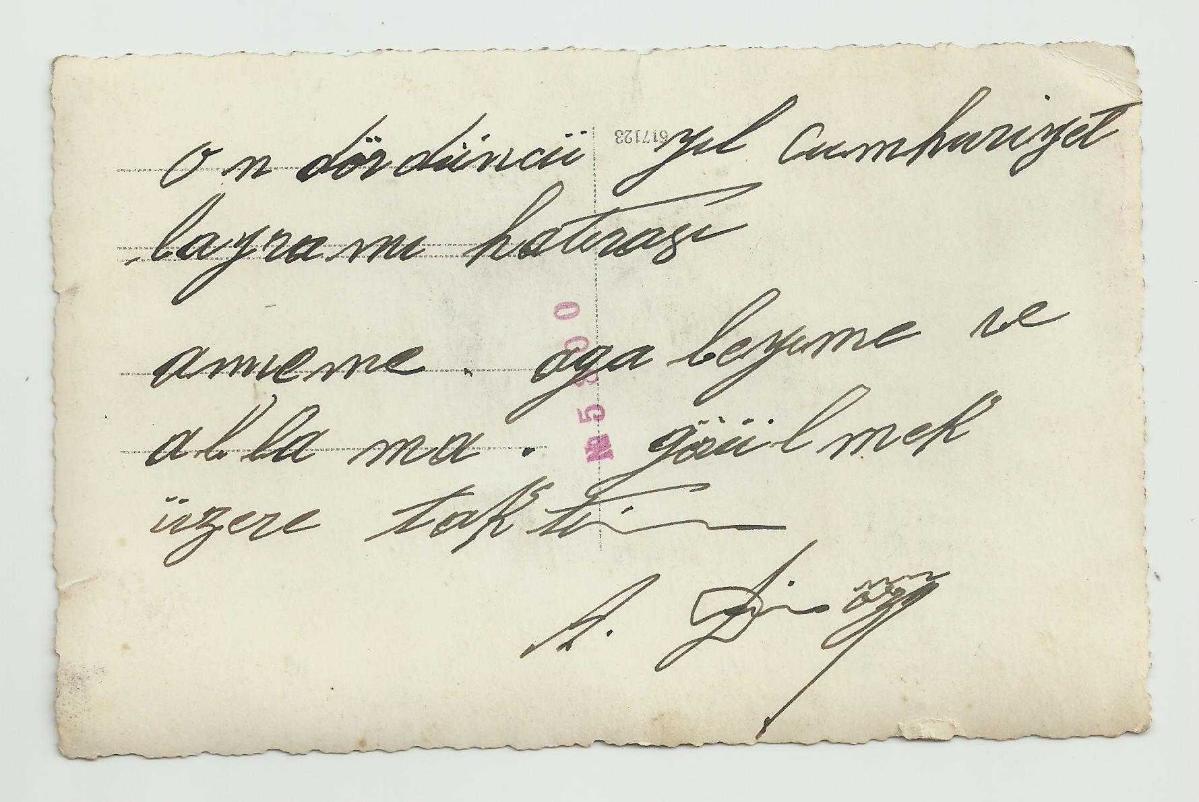 On dördüncü yıl Cumhuriyet
bayramı hatırası
anneme. ağa beyime ve
abla ma. görülmek
üzere takti
A.
617123
№ 5800